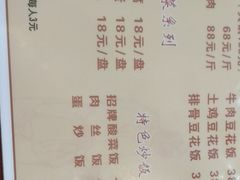 每人3元
18元/盘
18元/盘
18元/盘
菜系列
肉 68元/斤
88元/斤
特色炒饭
招牌酸菜饭
肉丝饭
蛋炒饭
牛肉豆花饭 3
土鸡豆花饭 3
排骨豆花饭 3